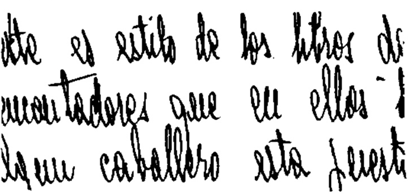 es estilo de los libros de
encantadores que en ellos
algun caballero esta puest